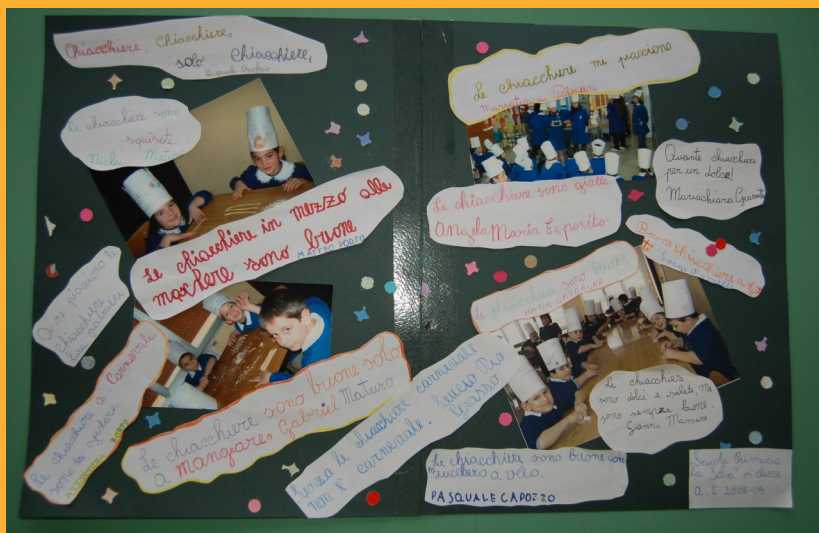 Chiacchiere, Chiacchiere,
solo Chiacchiere,
Le chiacchiere sono
squisite
Nicla Maturo
Le chiacchiere in mezzo alle
maschere sono buone
MATTEO PORTO
A mi piacciono le
chiacchiere
Le chiacchiere a Carnevale
sono la
PORTO
Le chiacchiere sono buone solo
a mangiare. Gabriel Maturo
Senza le chiacchiere carnevale
non è carnevale. Lucia Pia
Grasso
Le chiacchiere mi piacciono
Mariateresa Palmieri
Le chiacchiere sono gialle
Angela Maria Esposito
Quante chiacchiere
per un dolce!
Mariachiara
Buone chiacchiere a tut
ti
Le chiacchiere sono buone
MARIA
Le chiacchiere
sono dolci e salate, ma
sono sempre buone.
Gianni Massaro
Le chiacchiere sono buone con
lo zucchero a velo.
PASQUALE CAPOZZO
Scuola Primaria
"La Selva" classe
a. s. 2008-09